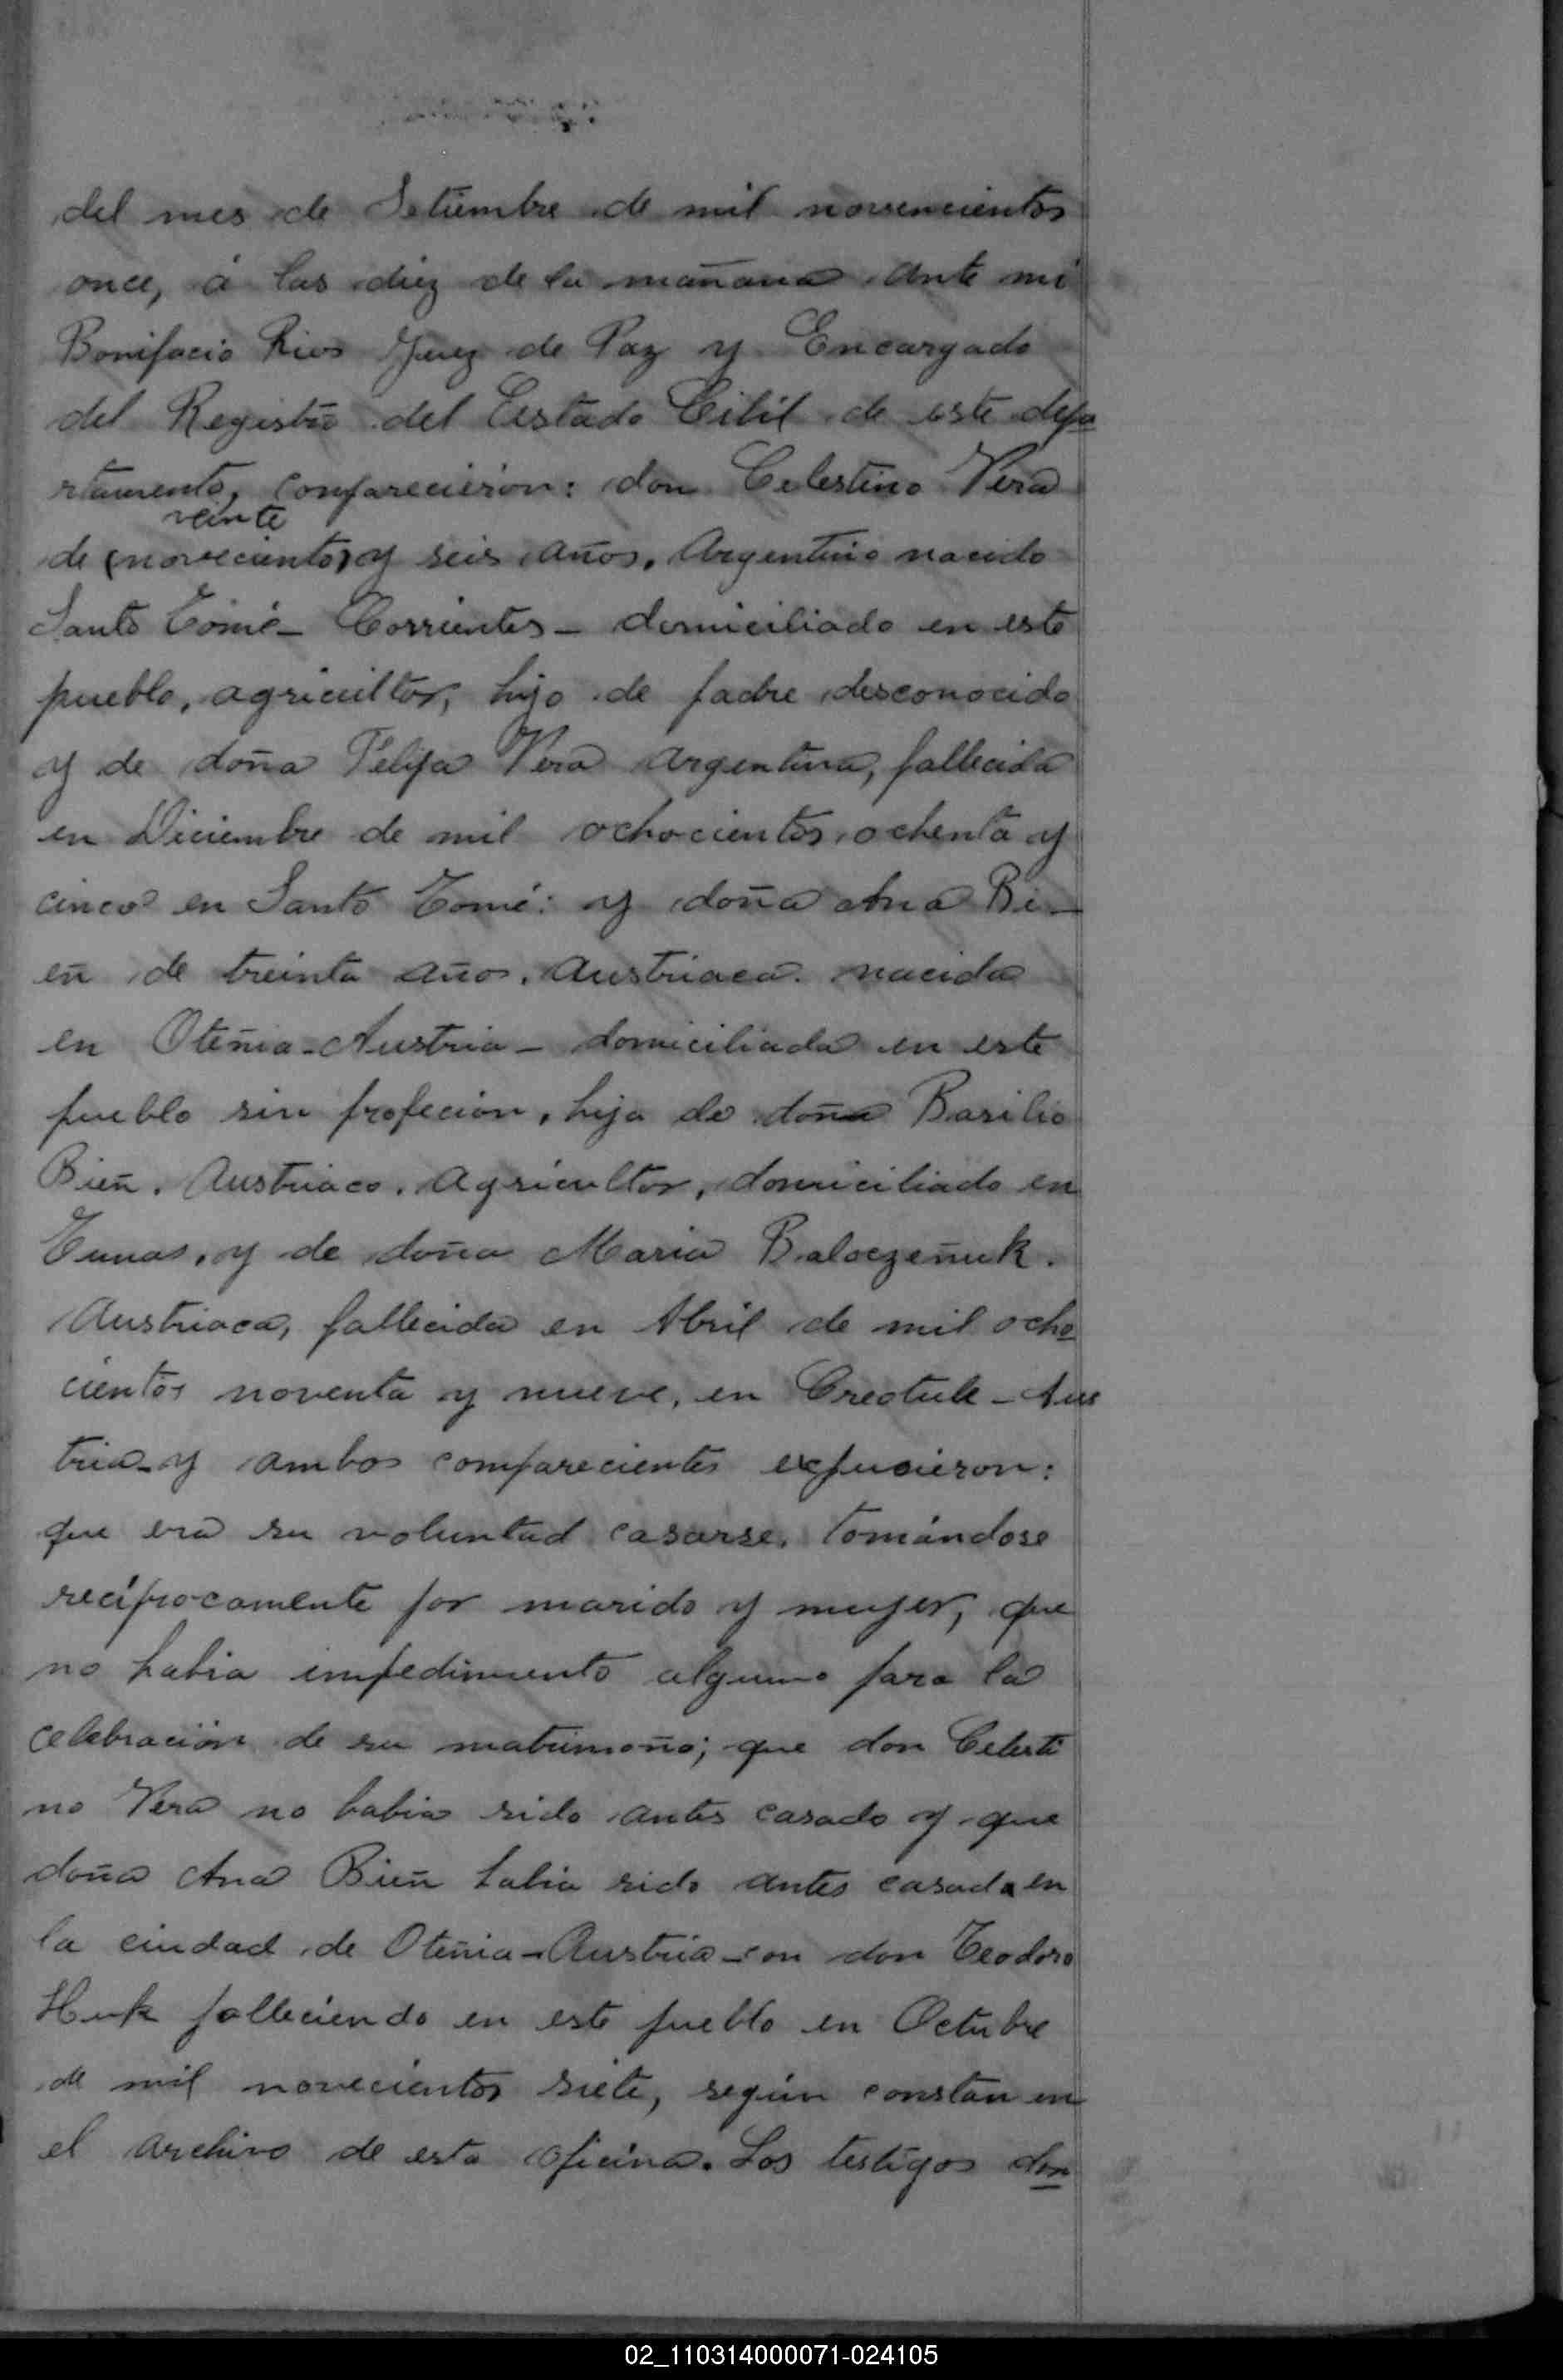 del mes de Setiembre de mil novencientos
once, á las diez de la mañana ante mi
Bonifacio Rios Juez de Paz y Encargado
del Registro del Estado Cibil de este depa
rtamento, comparecieron: don Celestino Vera
veinte
de (novecientos) y seis años, Argentino nacido
Santo Tomé - Corrientes - domiciliado en este
pueblo, agricultor, hijo de padre desconocido
y de doña Felipa Vera Argentina, fallecida
en Diciembre de mil ochocientos ochenta y
cinco en Santo Tomé: y doña Ana Bi-
eñ de treinta años. Austriaca. nacida
en Oteñia - Austria - domiciliada en este
pueblo sin profecion, hija de doña Basilio
Bieñ. Austriaco. Agricultor, domiciliado en
Tunas, y de doña Maria Baloezeñuk.
Austriaca, fallecida en Abril de mil ocho
cientos noventa y nueve, en Creotule - Aus
tria - y ambos comparecientes expusieron:
que era su voluntad casarse, tomándose
recíprocamente por marido y mujer, que
no habia impedimento alguno para la
celebración de su matrimoño; que don Celesti
no Vera no habia sido antes casado y que
doña Ana Bieñ habia sido antes casada en
la ciudad de Oteñia - Austria - con don Teodoro
Huk falleciendo en este pueblo en Octubre
de mil novecientos siete, según constan en
el archivo de esta oficina. Los testigos don
02_110314000071-024105